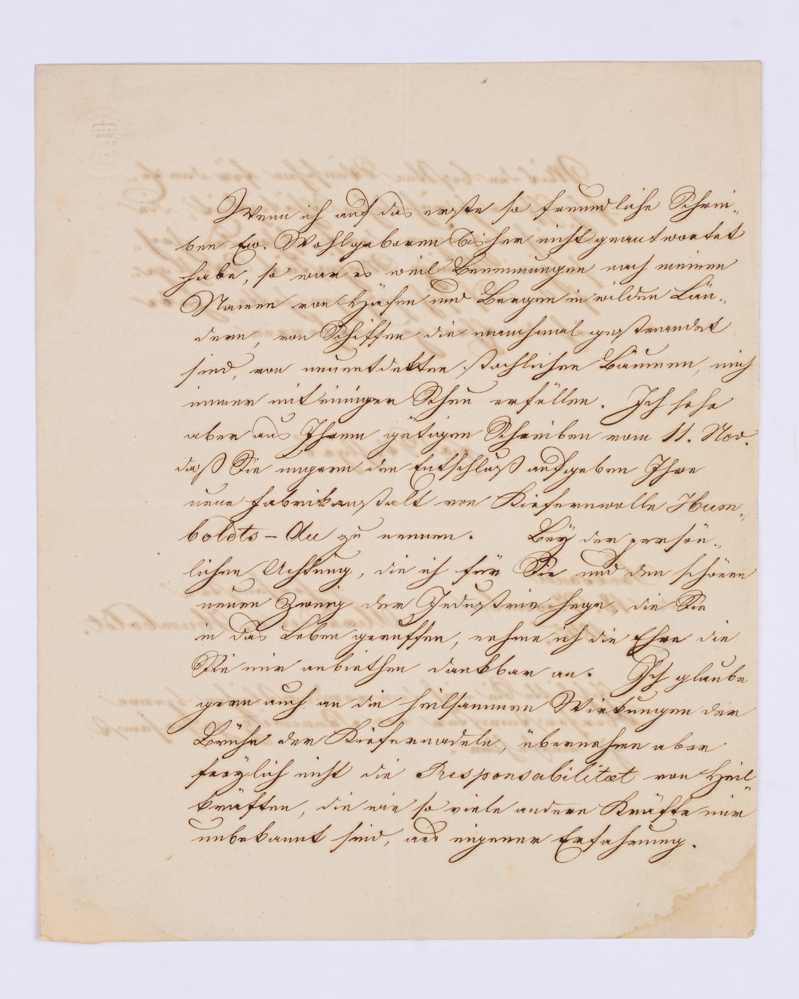 Wenn ich auf das erste so freundliche Schrei-
ben Ew. Wohlgeboren bisher nicht geantwortet
habe, so war es weil Benennungen nach meinem
Namen von Häfen und Bergen in wilden Län-
dern, von Schiffen die manchmal gestrandet
sind, von neuentdekten stachlichen Bäumen, mich
immer mit einiger Scheu erfüllen. Ich sehe
aber aus Ihrem gütigen Schreiben vom 11. Nov.
daß Sie ungern den Entschluß aufgeben Ihre
neue Fabrikanstalt von Kiefernwolle Hum-
boldts-Au zu nennen. Bey der persön-
lichen Achtung, die ich für Sie und den schönen
neuen Zweig der Industrie hege, die Sie
in das Leben geruffen, nehme ich die Ehre die
Sie mir anbiethen dankbar an. Ich glaube
gern auch an die heilsammen Wirkungen der
Brühe der Kiefernadeln, übernehme aber
freylich nicht die Responsabilitæt von Heil-
kräften, die wie so viele andere Kräfte mir
unbekannt sind, aus eigener Erfahrung.